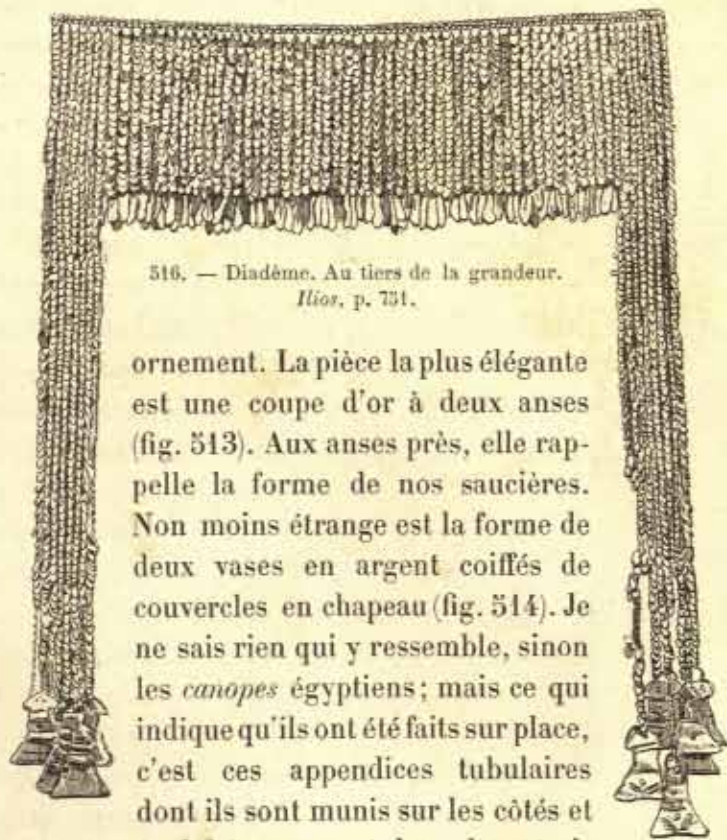 516. — Diadème. Au tiers de la grandeur.
Ilios, p. 731.
ornement. La pièce la plus élégante
est une coupe d'or à deux anses
(fig. 513). Aux anses près, elle rap-
pelle la forme de nos saucières.
Non moins étrange est la forme de
deux vases en argent coiffés de
couvercles en chapeau (fig. 514). Je
ne sais rien qui y ressemble, sinon
les canopes égyptiens; mais ce qui
indique qu'ils ont été faits sur place,
c'est ces appendices tubulaires
dont ils sont munis sur les côtés et